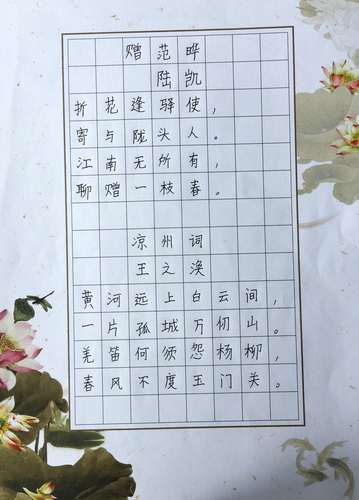 赠范晔
陆凯
折花逢驿使，
寄与陇头人。
江南无所有，
聊赠一枝春。
凉州词
王之涣
黄河远上白云间，
一片孤城万仞山。
羌笛何须怨杨柳，
春风不度玉门关。